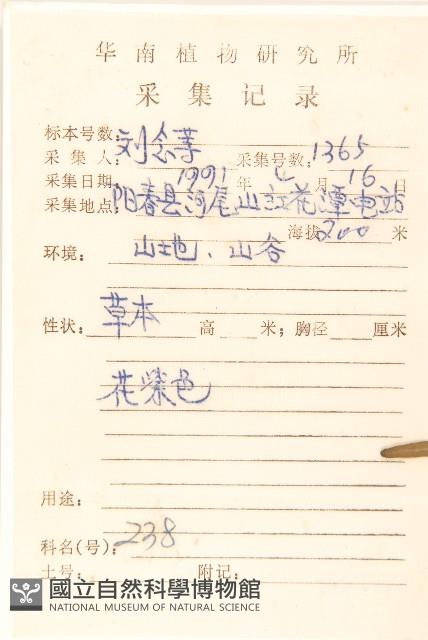 华南植物研究所
采集记录
标本号数:
采集人: 刘念等 采集号数: 1365
采集日期: 1991年4月16日
采集地点: 阳春县河尾山红花潭电站
海拔 200 米
环境: 山地、山谷
性状: 草本 高 米; 胸径 厘米
花紫色
用途:
科名(号): 238
土号: 附记:
國立自然科學博物館
NATIONAL MUSEUM OF NATURAL SCIENCE